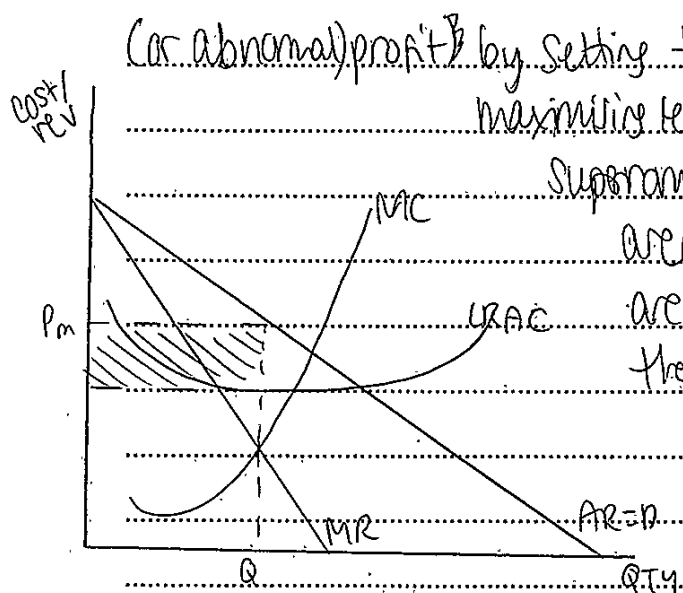 (or abnormal) profit by setting
cost/
rev
maximising
MC
Pm
LRAC
are
the
MR
AR=D
Q
QTY